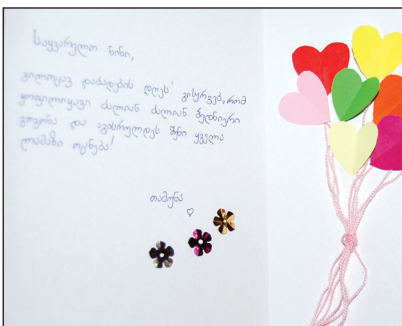 საყვარელო ნინი,
გილოცავ დაბადების დღეს! გისურვებ, რომ
ყოფილიყავი ძალიან ძალიან ბედნიერი
გოგონა და აგისრულდეს შენი ყველა
ლამაზი ოცნება!
თამუნა